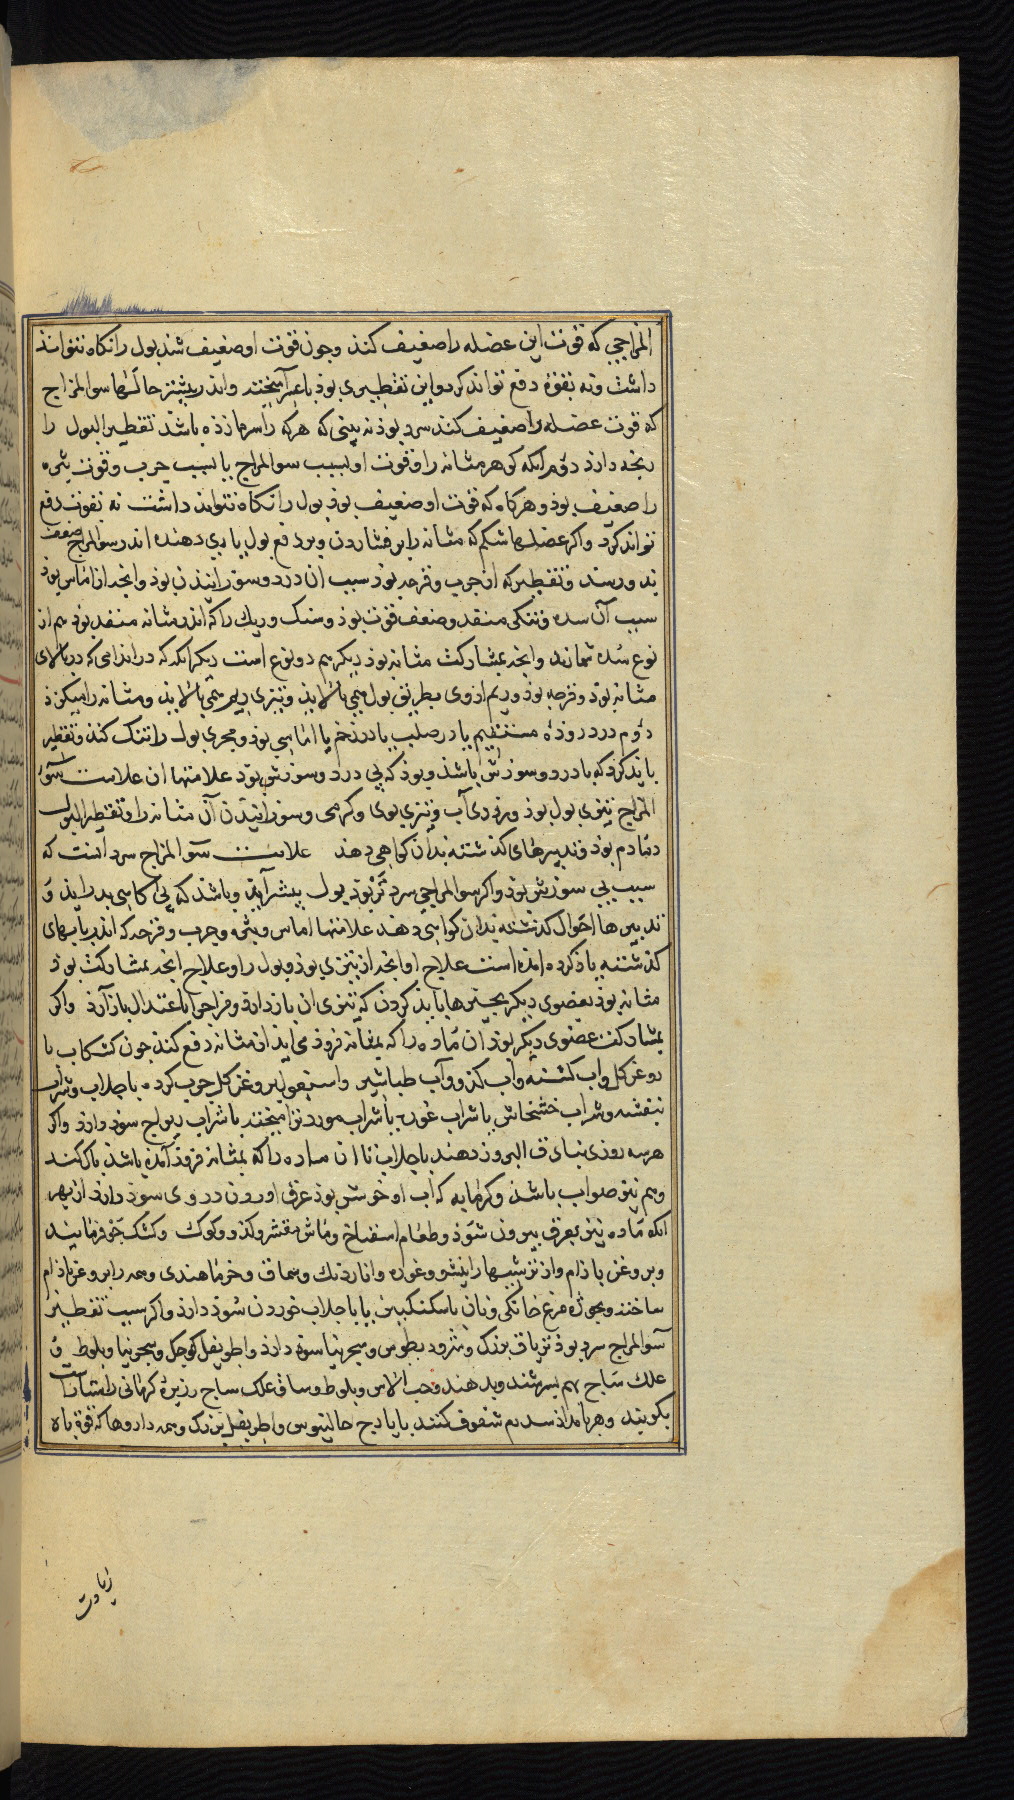 المزاجی که قوت این عضله را ضعیف کند و چون قوت او ضعیف شد بول را نکاه نتواند
داشت و نه بقوة دفع تواند کرد و این تقطیری بود با عسر آمیخته و اندر بیشتر حالتها سوالمزاج
که قوت عضله را ضعیف کند سرد بوذ نه بینی که هر که را سرما زذه باشد تقطیر البول را
رنجه دارد دوم آنکه کوهر مثانه را و قوت او بسبب سوالمزاج یا بسبب جرب و قوت بثره
را ضعیف بوذ و هرکاه که قوت او ضعیف بوذ بول را نکاه نتواند داشت نه بقوت دفع
تواند کرد و اکر عضلهاء شکم که مثانه را بر فشاردن و بر دفع بول یاری دهنده اند سوالمزاج ضعف
بدو رسد و تقطیر که از جرب و قرحه بوذ سبب آن درد و سوزانیدن بوذ و انچه از اماس بود
سبب آن سده و تنکی منفذ و ضعف قوت بوذ و سنک و ریك را که اندر مثانه منفذ بوذ هم از
نوع سده شمارند و انچه بمشارکت مثانه بوذ دیکر هم دو نوع است دیکر انکه که در اندامی که در بالای
مثانه بود و قرحه بوذ و ریم از وی بطریق بول همی پالاید و تیزی ریم همی پالاید و مثانه را میکزد
دوم درد روده مستقیم یا در صلب یا در زخم یا اماسی بوذ و مجری بول را تنک کند و تقطیر
باید کرد که با درد و سوزش باشد و بوذ که بی درد و سوزش بود علامتها ان علامت سوء
المزاج تیزی بول بوذ و زردی آب و تیزی بوی و کرمی و سوزانیدن آن مثانه را و تقطیر البول
دمادم بوذ و تدبیرهای کذشته بدان کواهی دهذ علامت سوء المزاج سرد آنست که
سبب بی سوزش بوذ و اکر سوالمزاجی سرد تر بوذ بول بیشتر آید و باشد که بی اکاهی بدر اید و
تدبیرها احوال کذشته بدان کواهی دهذ علامتها اماس و بثره و جرب و قرحه که اندر بابهای
کذشته یاذ کرده امده است علاج او انچه از تیزی بوذ و بول را و علاج انچه بمشارکت بوذ
مثانه بوذ بعضوی دیکر بجیزها باید کردن که تیزی ان باز دارد و مزاج را با عتدال باز آرد و اکر
بمشارکت عضوی دیکر بوذ ان ماده را که بمثانه فروذ می اید از مثانه دفع کند چون کشکاب با
روغن کل و اب کشته و اب کذو و آب طباشیر و اسبغول بر وغن کل چرب کرده با جلاب و شراب
بنفشه و شراب خشخاش با شراب غوره با شراب مورد ترا میخته با شراب ریواج سوذ دارد و اکر
هر سه روزی بنادق البزور دهند با جلاب تا ان ماده را که بمثانه فروذ آمده باشد پاک کند
و هم نیز صواب باشد و کرمابه که اب او خوش بوذ عرق اوردن در وی سوذ دارد از بهر
انکه ماده نیز بعرق بیرون شوذ و طعام اسفناخ و ماش مقشر و کذو و کوک و کشک جو فرمایند
و بر وغن باذام و از ترشیها رایشو و غوره و اناردنك و سماق و خرما هندی و همه را بر وغن باذام
ساختند و بجوزه مرغ خانکی و نان با سکنکبین یا با جلاب خوردن سوذ دارد و اکر سبب تقطیر
سوء المزاج سرد بوذ تریاق بزرک و مثرودیطوس و سجزینا سوذ دارد و اطریفل کوچک و سجزینا و بلوط و
علك ساج بهم بسرشند و بدهند و حب الاس و بلوط و ساق علک ساج زیره کرمانی راستاراست
بکوبند و هر بامداذ سه درم سفوف کنند با یارج جالینوس و اطریفل بزرک و همه داروها که قوة باه
زیادت